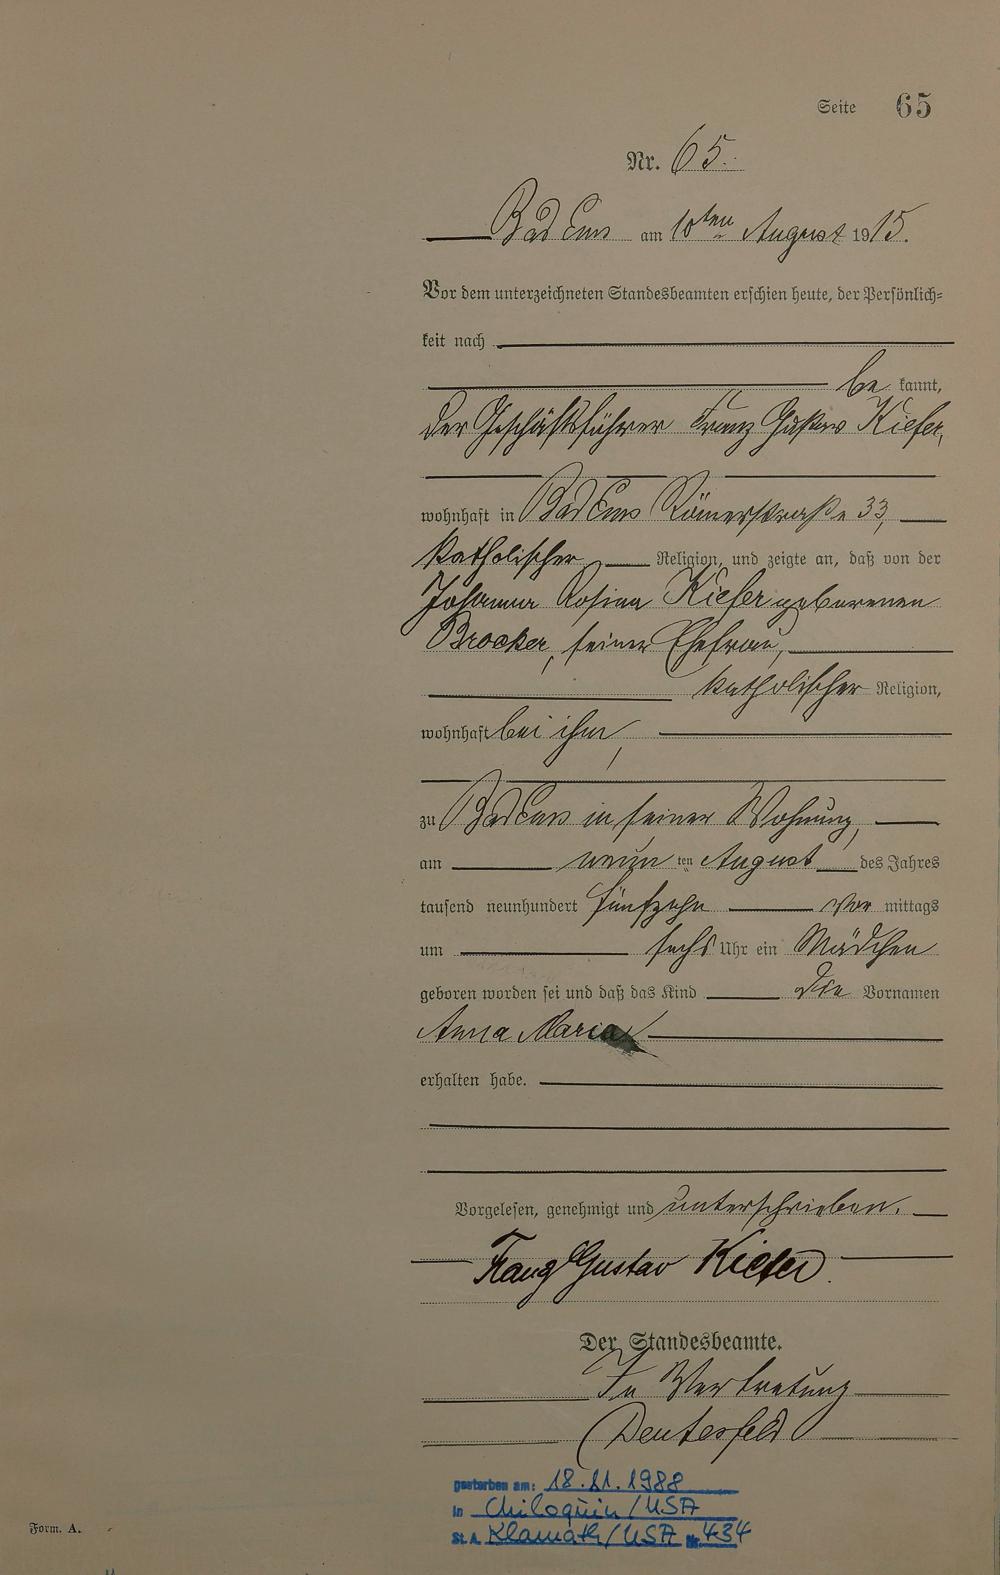 Seite 65
Nr. 65.
Bad Ems am 10ten August 1915.
Vor dem unterzeichneten Standesbeamten erschien heute, der Persönlich-
keit nach
be kannt,
der Geschäftsführer Franz Gustav Kiefer,
wohnhaft in Bad Ems Römerstraße 33,
katholischer Religion, und zeigte an, daß von der
Johanna Rosina Kiefer geborenen
Brocker, seiner Ehefrau,
katholischer Religion,
wohnhaft bei ihm,
zu Bad Ems in seiner Wohnung,
am neun ten August des Jahres
tausend neunhundert fünfzehn vor mittags
um sechs Uhr ein Mädchen
geboren worden sei und daß das Kind die Vornamen
Anna Maria
erhalten habe.
Vorgelesen, genehmigt und unterschrieben.
Franz Gustav Kiefer.
Der Standesbeamte.
In Vertretung
gestorben am: 18.11.1988
in Chiloquin/USA
St.A. Klamath/USA Nr. 434
Form. A.